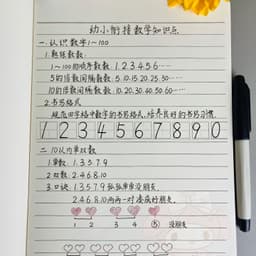 幼小衔接数学知识点
一.认识数字1~100
1.熟练数数.
1~100的顺序数数 1.2.3.4.5.6……
5的倍数间隔数数 5.10.15.20.25.30……
10的倍数间隔数数 10.20.30.40.50.60……
2.书写格式
规范田字格中数字的书写格式,培养良好的书写习惯.
1 2 3 4 5 6 7 8 9 0
二.10以内单双数
1.单数 1.3.5.7.9
2.双数 2.4.6.8.10
3.口诀 1.3.5.7.9 孤孤单单没朋友.
2.4.6.8.10 两两一对凑成好朋友.
1 2 3 4 ⑤ 没朋友